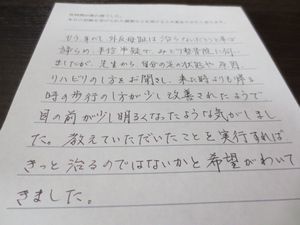 もう、手じかし、外反母趾は治らないだろうと半ば
諦らめ、半信半疑で、みどり整骨院に伺い
ましたが、先生から、自分の足の状態や原因、
リハビリの仕方をお聞きし、来た時よりも帰る
時の歩行の仕方が少し改善されたようで
目の前が少し明るくなったような気がしまし
た。教えていただいたことを実行すれば
きっと治るのではないかと希望がわいて
きました。